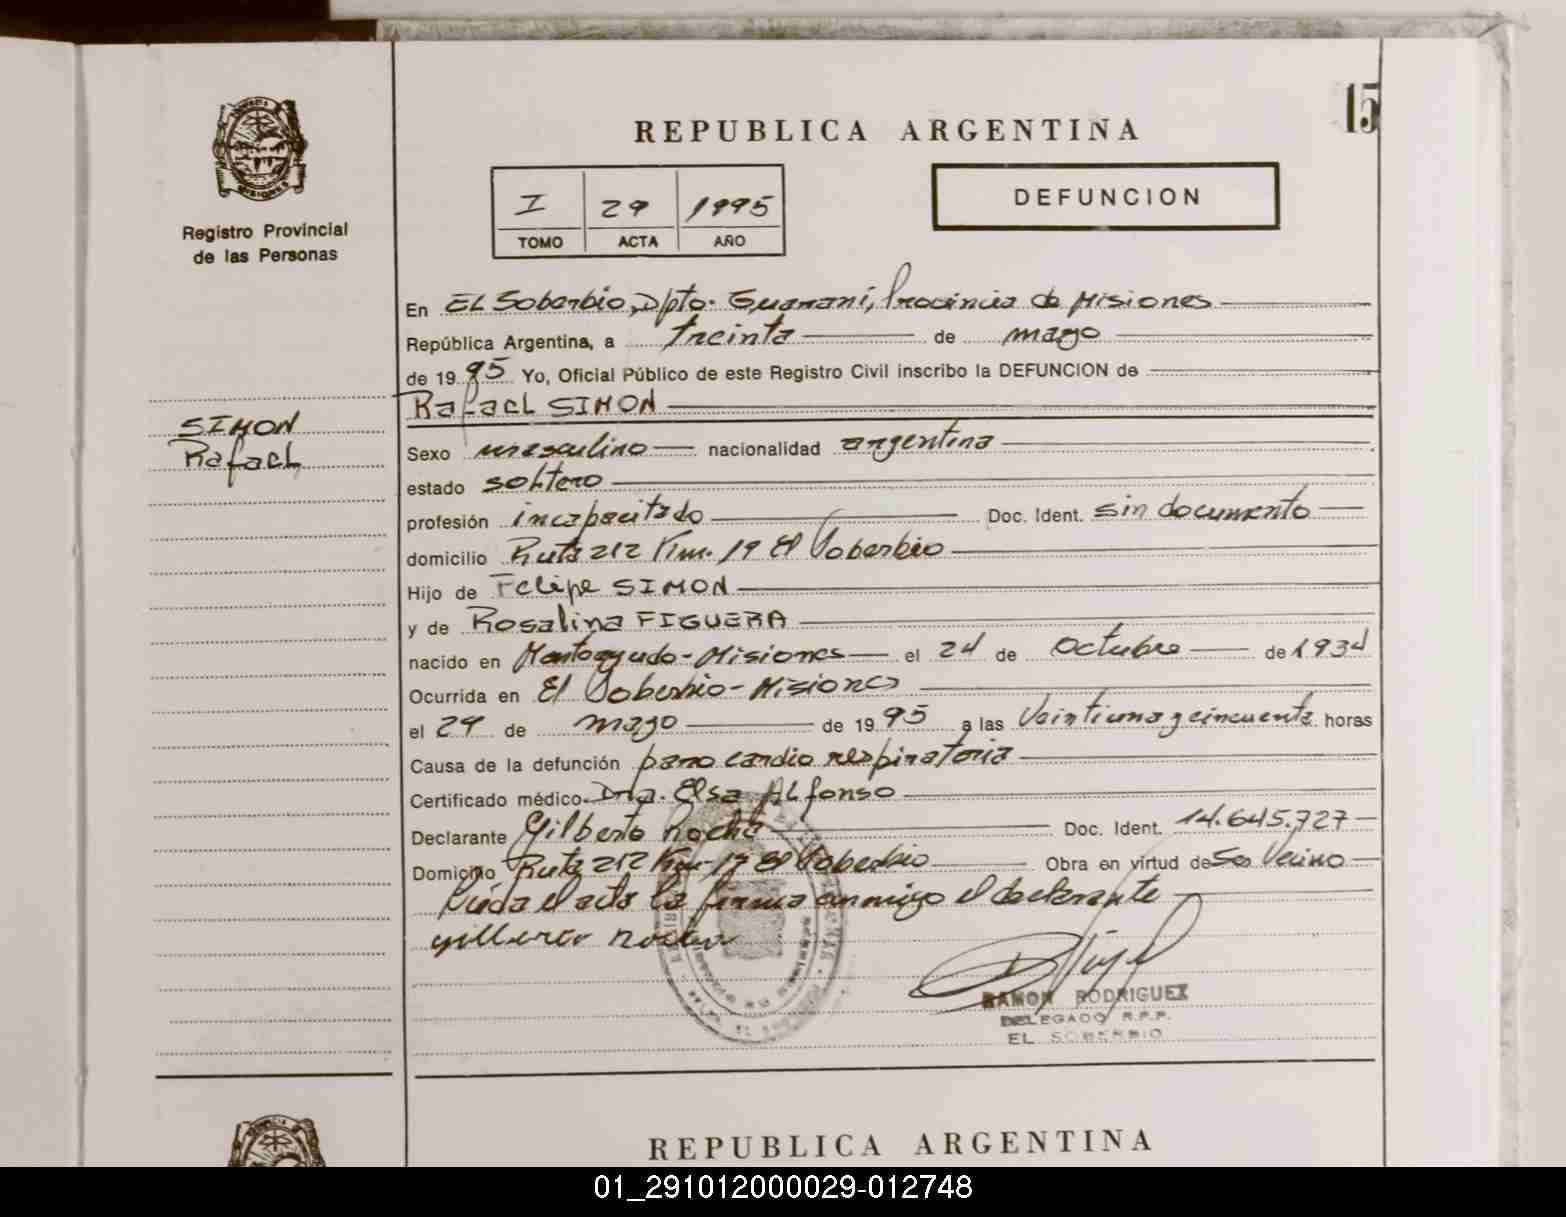 15
REPUBLICA ARGENTINA
I 29 1995
TOMO ACTA AÑO
DEFUNCION
MISIONES
Registro Provincial
de las Personas
SIMON
Rafael
En El Soberbio, Dpto. Guaraní, Provincia de Misiones
República Argentina, a treinta de mayo
de 1995 Yo, Oficial Público de este Registro Civil inscribo la DEFUNCION de
Rafael SIMON
Sexo masculino nacionalidad argentina
estado soltero
profesión incapacitado Doc. Ident. sin documento
domicilio Ruta 212 Km. 19 El Soberbio
Hijo de Felipe SIMON
y de Rosalina FIGUERA
nacido en Monteagudo - Misiones el 24 de Octubre de 1934
Ocurrida en El Soberbio - Misiones
el 29 de mayo de 1995 a las Veintiuna y cincuenta horas
Causa de la defunción paro cardio respiratoria
Certificado médico Dra. Elsa Alfonso
Declarante Gilberto Rocha Doc. Ident. 14.645.727
Domicilio Ruta 212 Km 19 El Soberbio Obra en virtud de Ser Vecino
Leída el acta la firma conmigo el declarante
RAMON RODRIGUEZ
DELEGADO R.P.P.
EL SOBERBIO
REPUBLICA ARGENTINA
01_291012000029-012748